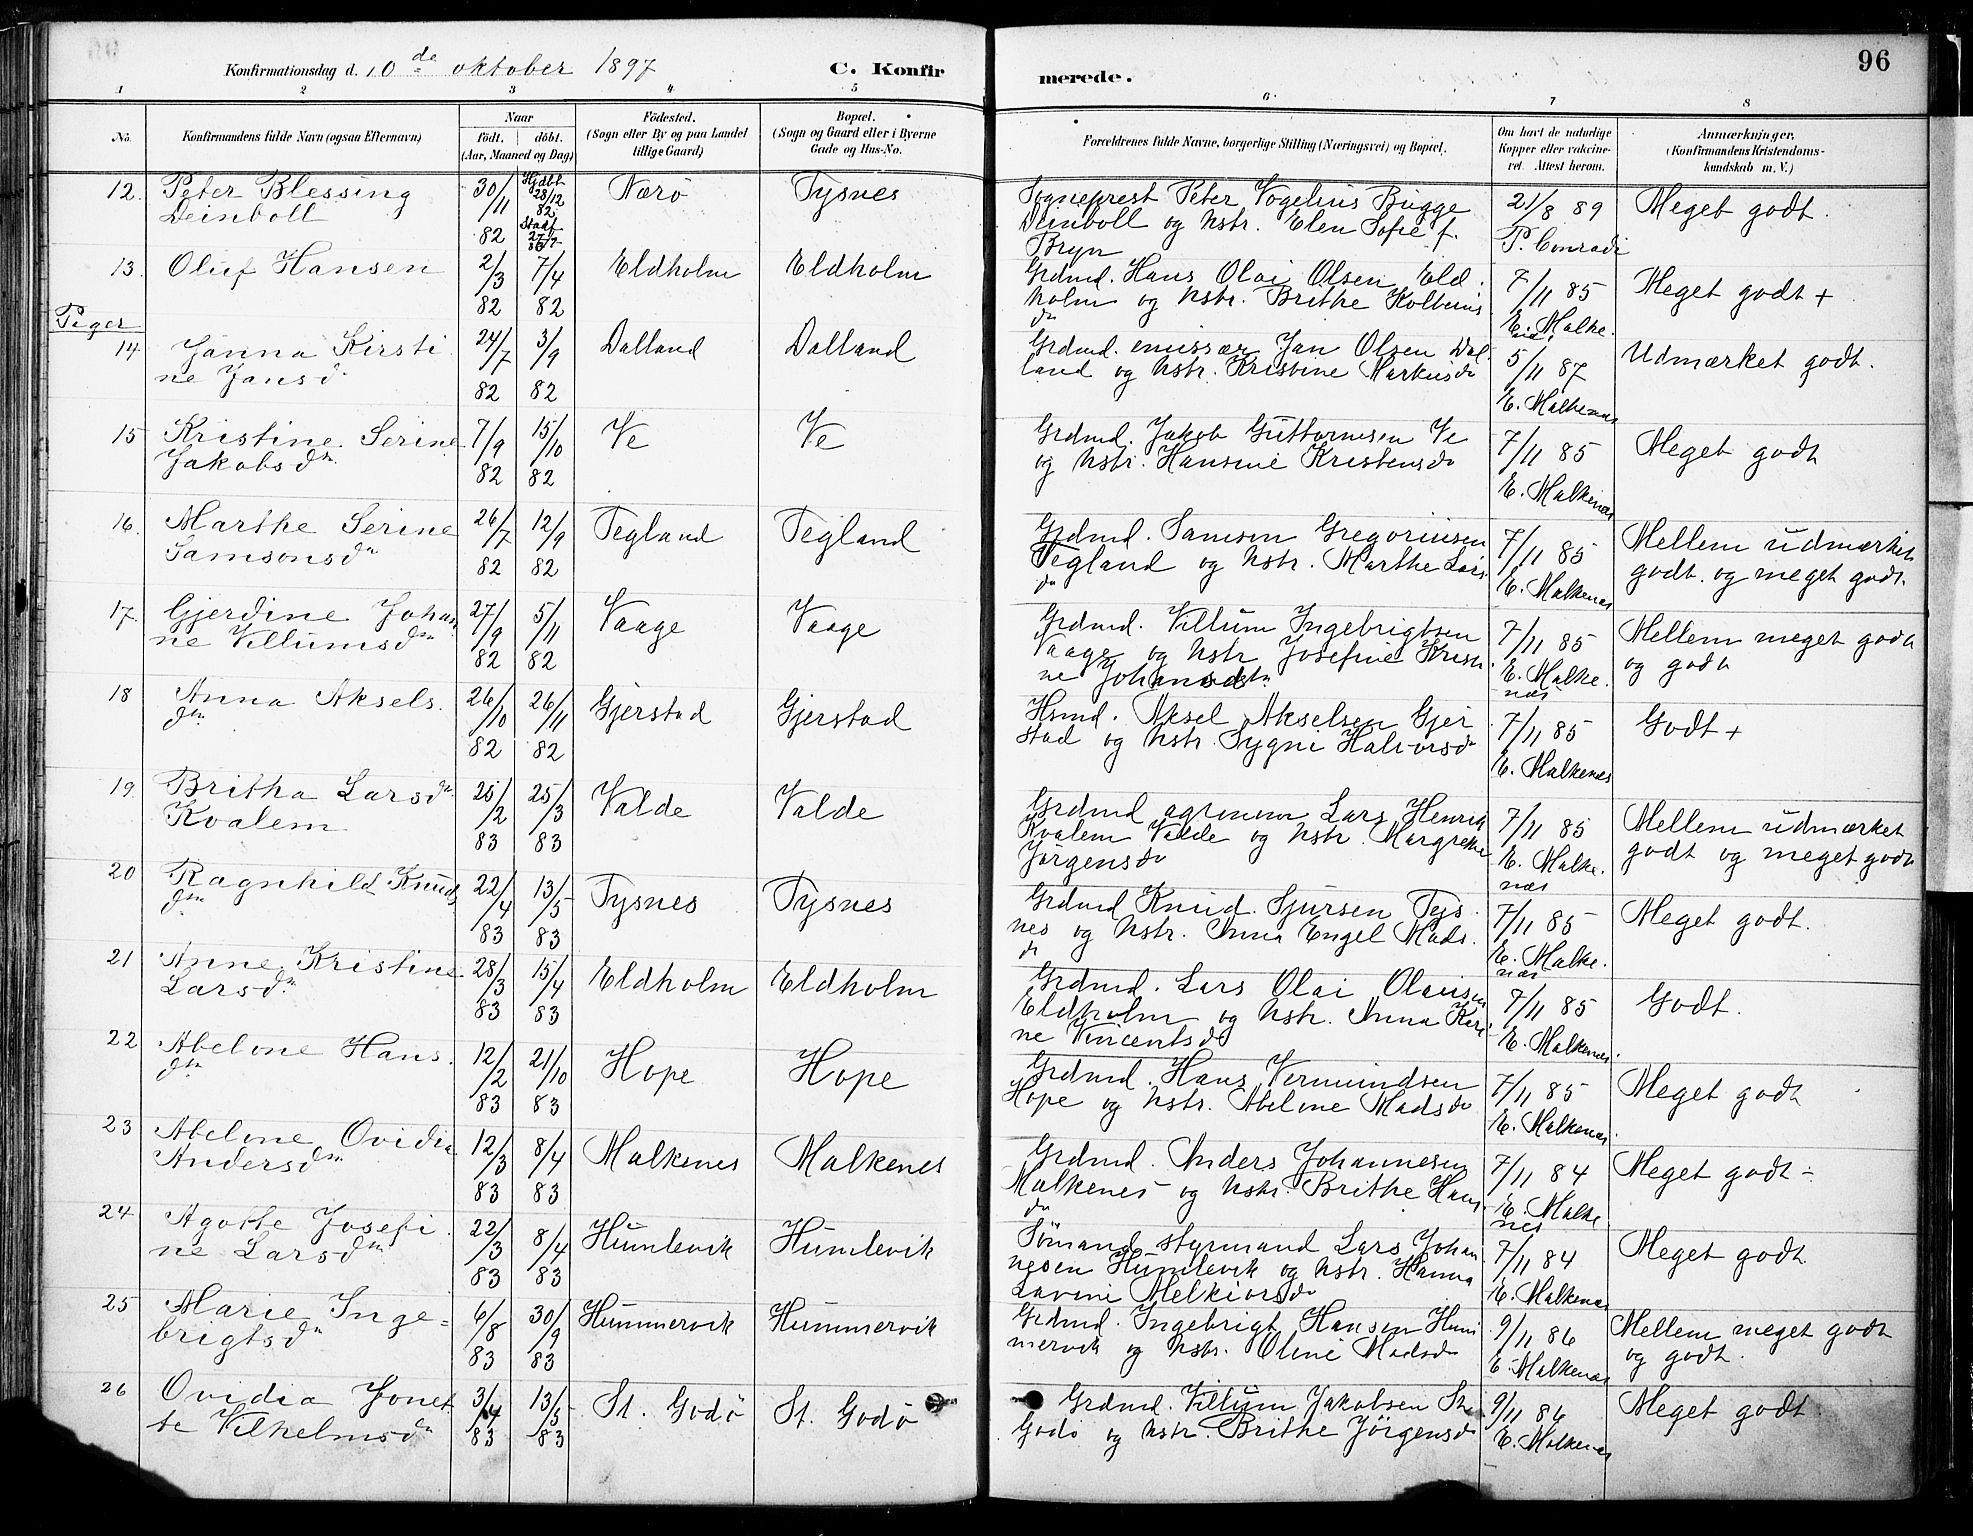 Konfirmationsdag d. 10de oktober 1897 C. Konfirmerede. 96
1 2 3 4 5 6 7 8
No. Konfirmandens fulde Navn (ogsaa Efternavn) Naar født. døbt. (Aar, Maaned og Dag) Fødested. (Sogn eller By og paa Landet tillige Gaard) Bopæl. (Sogn og Gaard eller i Byerne Gade og Hus-No. Forældrenes fulde Navne, borgerlige Stilling (Næringsvei) og Bopæl. Om havt de naturlige Kopper eller vakcineret. Attest herom. Anmærkninger, (Konfirmandens Kristendomskundskab m. V.)
12. Peter Blessing Deinboll 30/11 82 Hjdbt 28/12 82 Stadf Nærö Tysnes Sogneprest Peter Vogelius Bugge Deinboll og hstr. Elen Sofie f. Bryn 21/8 89 P. Conradi Meget godt.
13. Oluf Hansen 2/3 82 7/4 82 Eldholm Eldholm Grdmd. Hans Olai Olsen Eldholm og hstr. Brithe Kolbeinsdr 7/11 85 E. Malkenæs Meget godt +
Piger
14. Janna Kirstine Jansd. 24/7 82 3/9 82 Dalland Dalland Grdmd. emissær Jan Olsen Dalland og hstr. Kristine Markusdr 5/11 87 E. Malkenæs Udmærket godt.
15 Kristine Serine Jakobsdr 7/9 82 15/10 82 Ve Ve Grdmd. Jakob Guttormsen Ve og hstr. Hansine Kristensdr 7/11 85 E. Malkenæs Meget godt
16. Marthe Serine Samsonsdr 26/7 82 12/9 82 Tegland Tegland Grdmd. Samson Gregoriusen Tegland og hstr. Marthe Larsdr 7/11 85 E. Malkenæs Mellem udmærket godt og meget godt.
17. Gjerdine Johanne Villumsdtr 27/9 82 5/11 82 Vaage Vaage Grdmd. Villum Ingebrigtsen Vaage og hstr Josefine Kristine Johansdtr 7/11 85 E. Malkenæs Mellem meget godt og godt
18 Anna Akselsdtr 26/10 82 26/11 82 Gjerstad Gjerstad Hsmd. Aksel Akselsen Gjerstad og hstr. Sygni Halvorsdr 7/11 85 E. Malkenæs Godt +
19. Britha Larsdr. Kvalem 25/2 83 25/3 83 Valde Valde Grdmd agronom Lars Henrik Kvalem Valde og hstr. Margrethe Jørgensdr 7/11 85 E. Malkenæs Mellem udmærket godt og meget godt
20 Ragnhild Knudsdtr 22/4 83 13/5 83 Tysnes Tysnes Grdmd Knud Sjursen Tysnes og hstr. Anna Engel Madsdr 7/11 85 E. Malkenæs Meget godt.
21 Anne Kristine Larsdr 28/3 83 15/4 83 Eldholm Eldholm Grdmd. Lars Olai Olausen Eldholm og hstr. Anna Karine Vincentsdr 7/11 85 E. Malkenæs. Godt.
22 Abelone Hansdtr 12/2 83 21/10 83 Hope Hope Grdmd. Hans Vermundsen Hope og hstr. Abelone Madsdr 7/11 85 E. Malkenæs. Meget godt
23 Abelone Ovidia Andersdtr 12/3 83 8/4 83 Malkenes Malkenes Grdmd. Anders Johannesen Malkenes og hstr. Brithe Hansdr 7/11 84 E. Malkenes Meget godt ÷
24 Agathe Josefine Larsdtr 22/3 83 8/4 83 Humlevik Humlevik Sømand styrmand Lars Johannesen Humlevik og hstr. Hanna Lavine Melkiorsdr 7/11 84 E. Malkenæs Meget godt
25 Marie Ingebrigtsdr 6/8 83 30/9 83 Hummervik Hummervik Grdmd. Ingebrigt Hansen Hummervik og hstr. Oline Madsdr 9/11 86 E. Malkenæs Mellem meget godt og godt.
26 Ovidia Jonette Vilhelmsdr 3/4 83 13/5 83 St. Godö St. Godö Grdmd. Villum Jakobsen St. Godö og hstr. Brithe Jörgensdr 9/11 86 E. Malkenæs Meget godt.